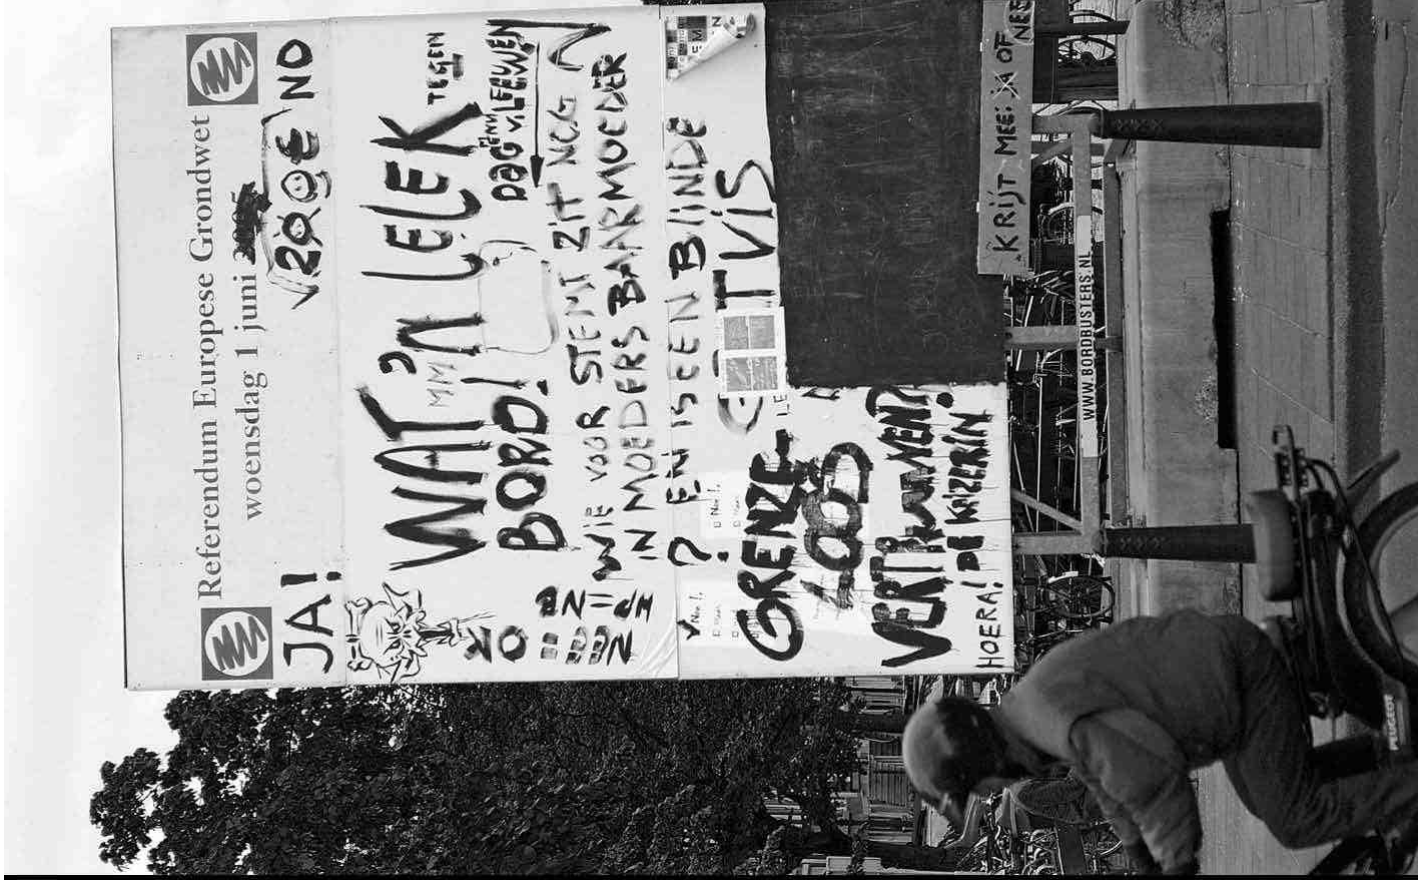 Referendum Europese Grondwet
woensdag 1 juni
JA!
NO
WAT 'N LELEK
TEGEN
BORD!
DAG V. LEEUWEN
WIE VOOR STEMT ZIT NOG
IN MOEDERS BAARMOEDER
? EN IS EEN BLINDE
TVIS
GRENZE-
LOOS
VERTROUWEN?
HOERA! DE KAIZERIN
KRIJT MEE! JA OF
NEE
WWW.BORDBUSTERS.NL
PEUGEOT